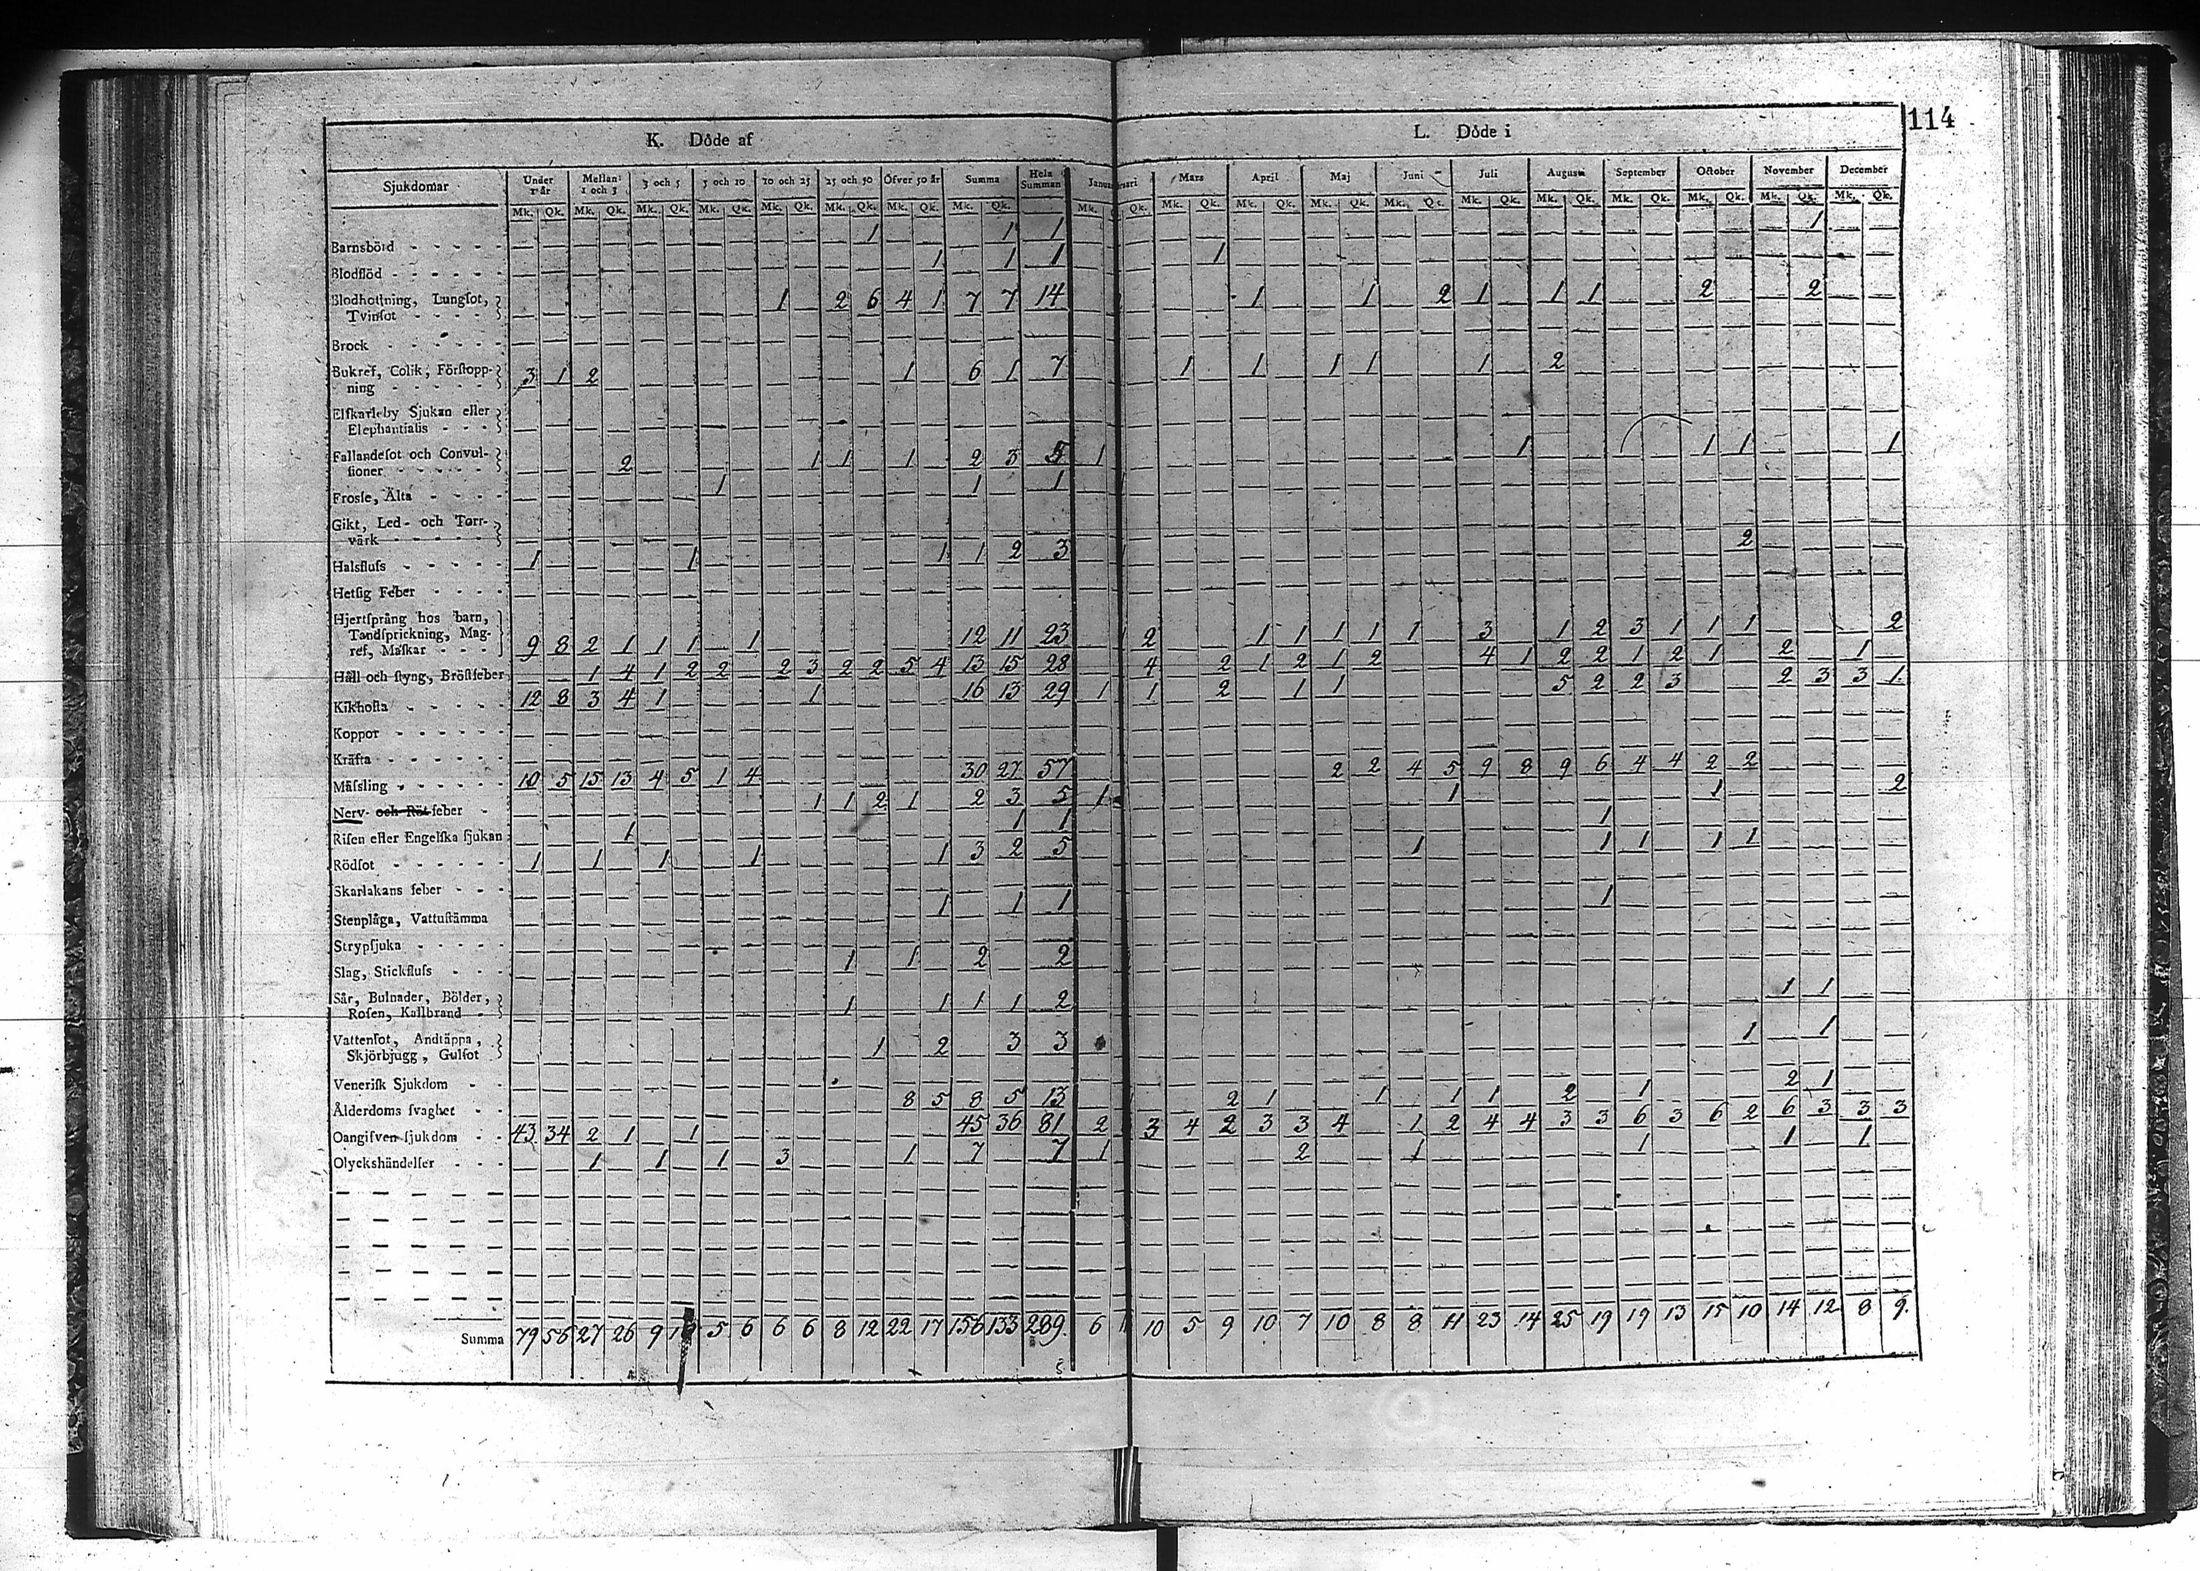 114
K. Döde af
L. Döde i
Sjukdomar Under 1 år Mellan 1 och 3 3 och 5 5 och 10 10 och 25 25 och 50 Öfver 50 år Summa Hela Summan Mars April Maj Juni Juli Augusti September October November December
Mk. Qk. Mk. Qk. Mk. Qk. Mk. Qk. Mk. Qk. Mk. Qk. Mk. Qk. Mk. Qk. Mk. Qk. Mk. Qk. Mk. Qk. Mk. Qk. Mk. Qk. Mk. Qk. Mk. Qk. Mk. Qk. Mk. Qk. Mk. Qk. Mk. Qk.
Barnsbörd 1 1 1 1
Blodflöd 1 1 1 1
Blodhostning, Lungsot,
Tvinsot 1 2 6 4 1 7 7 14 1 1 2 1 1 1 2 2
Brock
Bukref, Colik, Förstopp-
ning 3 1 2 1 6 1 7 1 1 1 1 1 2
Elfkarleby Sjukan eller
Elephantiasis
Fallandesot och Convul-
sioner 2 1 1 1 2 3 5 1 1 1 1 1
Frossa, Älta 1 1 1
Gikt, Led- och Torr-
värk
Halsfluss 1 1 1 1 2 3 2
Hetsig Feber
Hjertsprång hos barn,
Tandsprickning, Mag-
ref, Maskar 9 8 2 1 1 1 1 12 11 23 2 1 1 1 1 1 3 1 2 3 1 1 1 2
Håll och styng, Bröstfeber 1 4 1 2 2 2 3 2 2 5 4 13 15 28 4 2 1 2 1 2 4 1 2 2 1 2 1 2 1
Kikhosta 12 8 3 4 1 1 16 13 29 1 1 2 1 1 5 2 2 3 2 3 3 1
Koppor
Kräfta
Mässling 10 5 15 13 4 5 1 4 30 27 57 2 2 4 5 9 8 9 6 4 4 2 2
Nerv- och Röt-feber 1 1 2 1 2 3 5 1 1 1 2
Risen eller Engelska sjukan 1 1 1 1
Rödsot 1 1 1 1 1 3 2 5 1 1 1 1 1
Skarlakans feber
Stenplåga, Vattustämma 1 1 1 1
Strypsjuka
Slag, Stickfluss 1 1 2 2
Sår, Bulnader, Bölder,
Rosen, Kallbrand 1 1 1 1 2 1 1
Vattensot, Andtäppa,
Skjörbjugg, Gulsot 1 2 3 3 1 1
Venerisk Sjukdom
Ålderdoms svaghet 8 5 8 5 13 2 1 1 1 1 2 1 2 1
Oangifven sjukdom 43 34 2 1 1 45 36 81 2 3 4 2 3 3 4 1 2 4 4 3 3 6 3 6 2 6 3 3 3
Olyckshändelser 1 1 1 3 1 7 7 1 2 1 1 1 1
Summa 79 56 27 26 9 5 6 6 6 8 12 22 17 156 133 289 6 10 5 9 10 7 10 8 8 11 23 14 25 19 19 13 15 10 14 12 8 9